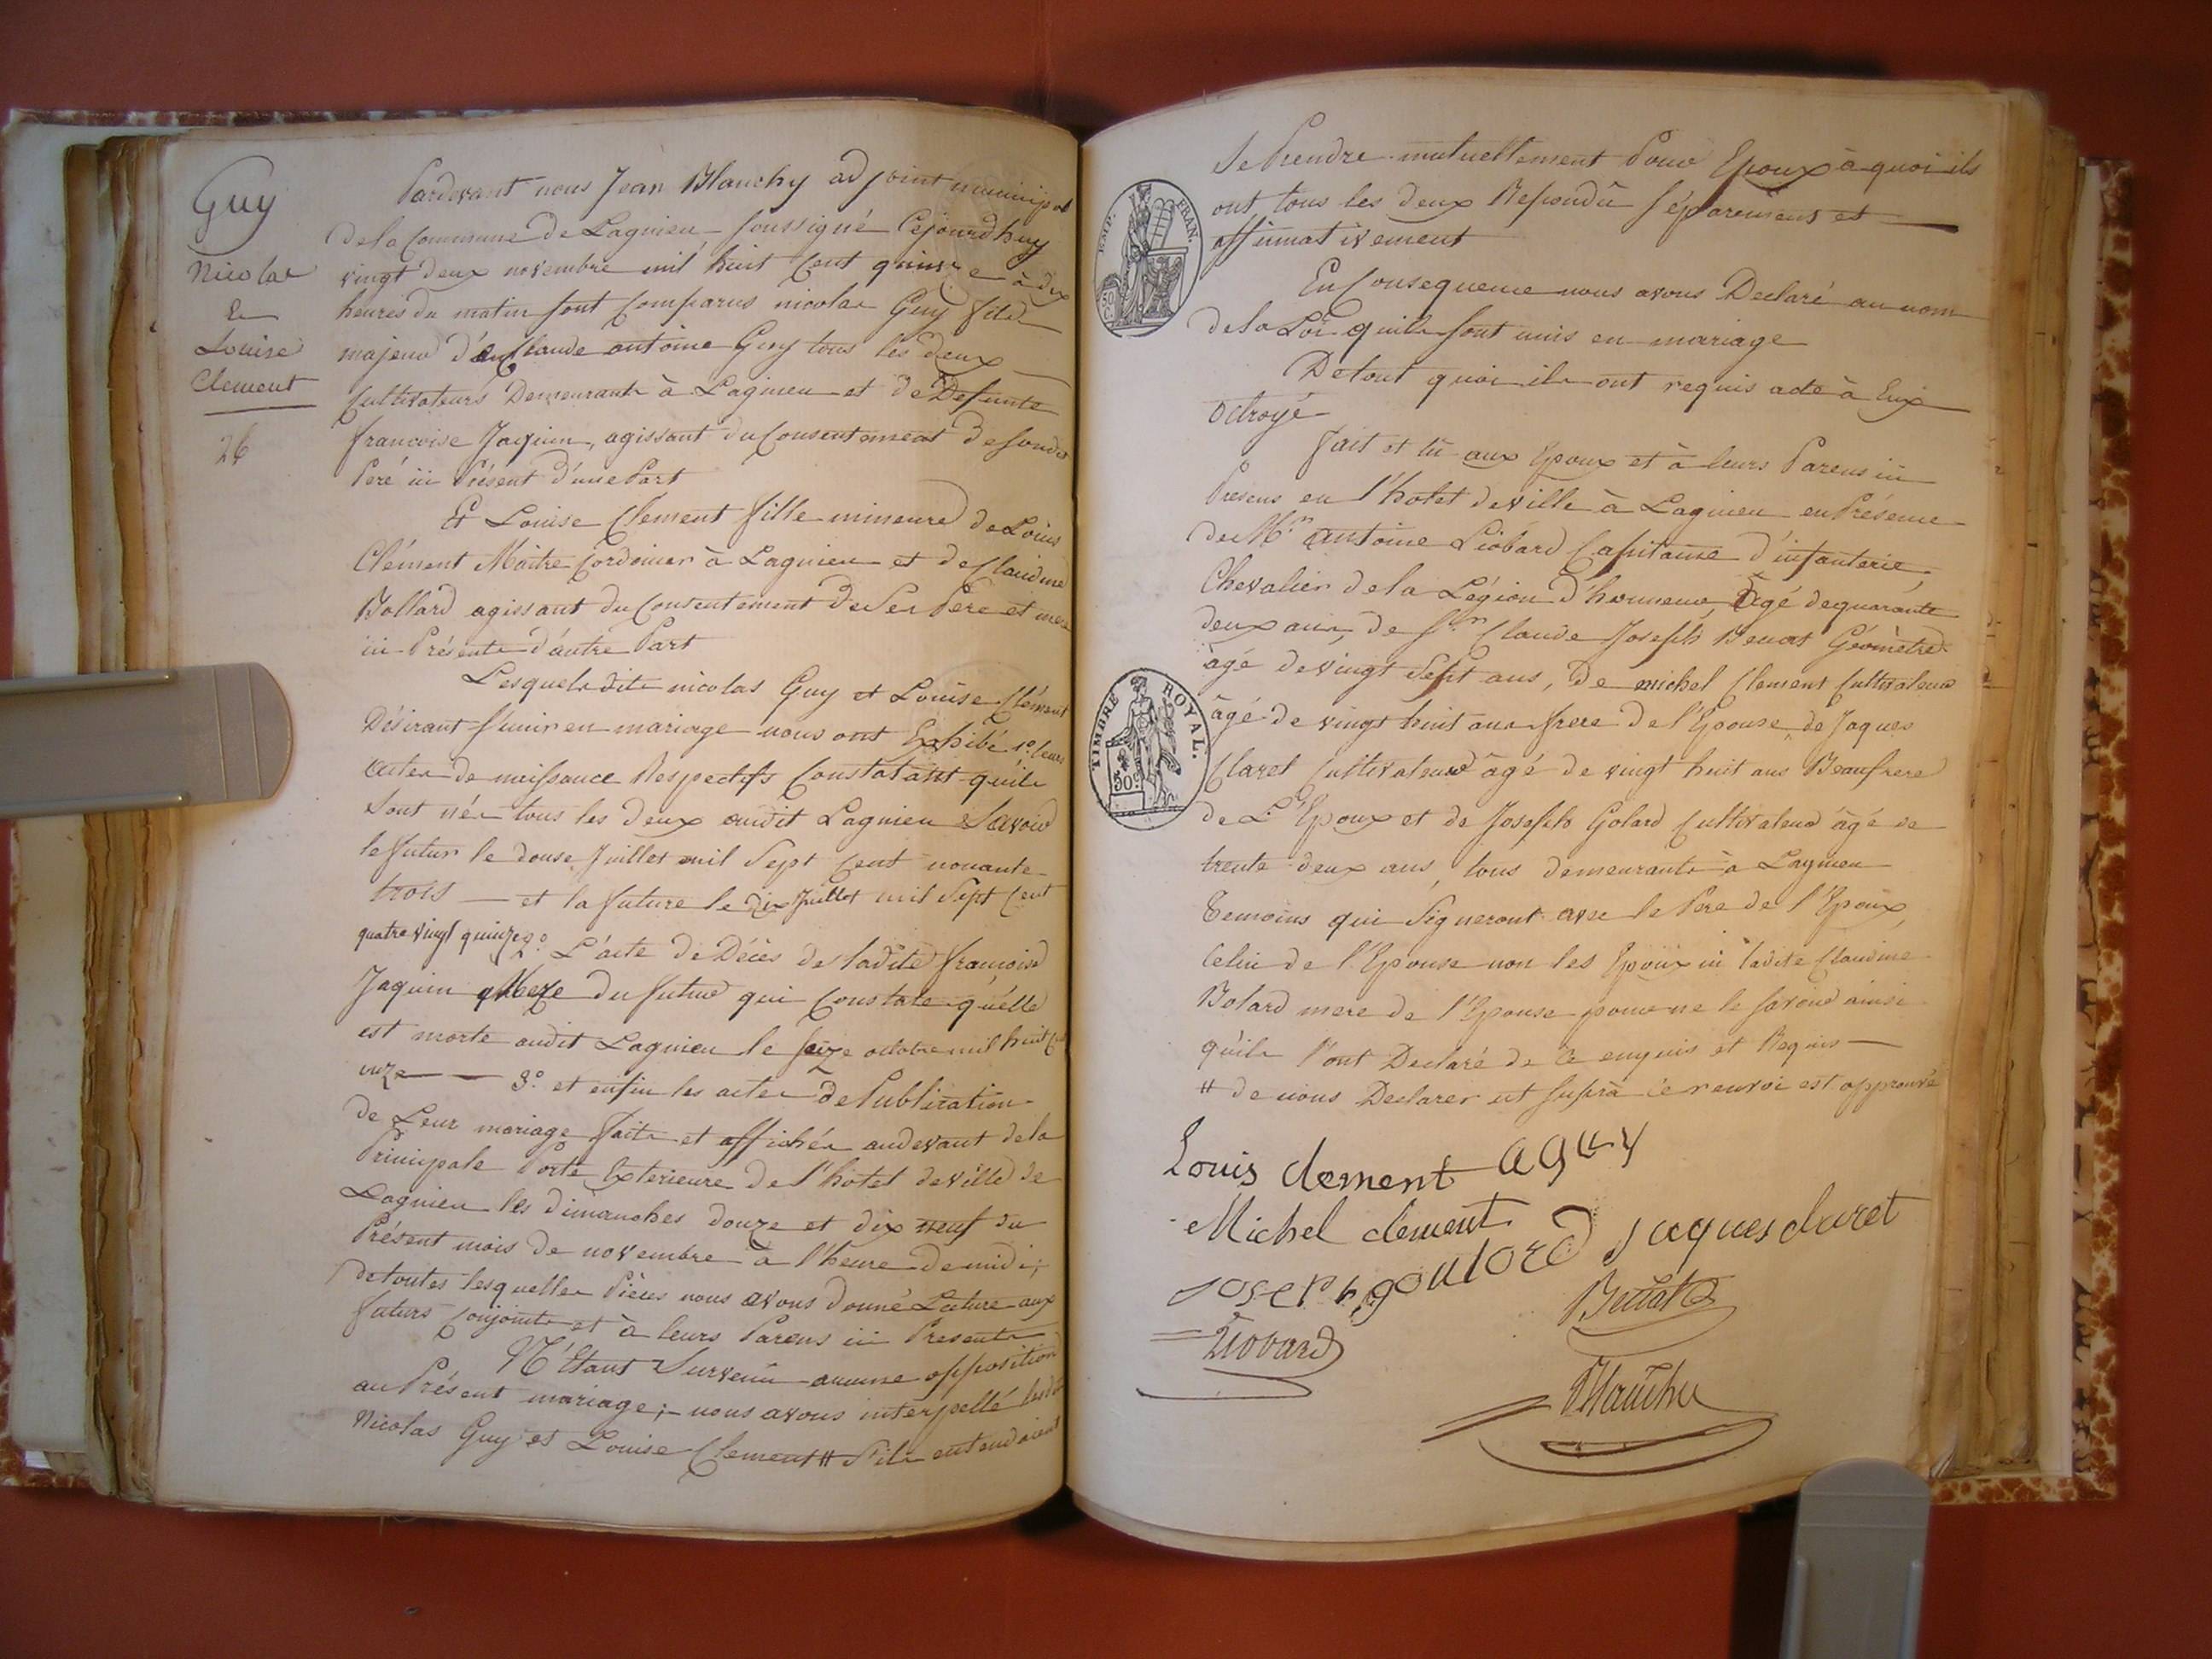 Guy
Nicolas
&
Louise
Clement
26
Pardevant nous Jean Blanchy adjoint municipal
de la Commune de Lagnieu soussigné Cejourd'huy
vingt deux novembre mil huit Cent quinze à dix
heures du matin sont Comparus nicolas Guy fils
majeur d' Claude antoine Guy tous les deux
Cultivateurs Demeurants à Lagnieu et de Defunte
francoise Jaquin, agissant du Consentement de sondit
Pere ici Présent d'une Part
Et Louise Clement fille mineure de Louis
Clément Maitre Cordonier à Lagnieu et de Claudine
Bollard agissant du Consentement de Ses Père et mere
ici Présents d'autre Part
Lesquels dits nicolas Guy et Louise Clément
Désirant s'unir en mariage nous ont Exhibé 1º leurs
actes de naissance Respectifs Constatant qu'ils
Sont nés tous les deux audit Lagnieu Savoir
le futur le douse Juillet mil Sept Cent nonante
trois — et la future le dix Juillet mil Sept Cent
quatre vingt quinze 2º L'acte de Décès de ladite françoise
Jaquin Mere du futur qui Constate qu'elle
est morte audit Lagnieu le seize octobre mil huit Cent
onze — 3º et enfin les actes de Publication
de Leur mariage faits et affichés audevant de la
Principale Porte Exterieure de l'hotel de ville de
Lagnieu les dimanches douze et dix neuf du
Présent mois de novembre à l'heure de midi;
de toutes lesquelles Pièces nous avons donné Lecture aux
futurs Conjoints et à leurs Parens ici Presents
N'Etant Survenu aucune opposition
au Présent mariage; nous avons interpellé lesdits
Nicolas Guy et Louise Clement # S'ils entendoient
Se Prendre mutuellement Pour Epoux à quoi ils
ont tous les deux Repondu séparement et
affirmativement
En Consequence nous avons Declaré au nom
de la Loi quils sont unis en mariage
De tout quoi ils ont requis acte à Eux
Octroyé
fait et lu aux Epoux et à leurs Parens ici
Presens en l'hotel de ville à Lagnieu en Présence
de Mr. antoine Liobard Capitaine d'infanterie,
Chevalier de la Légion d'honneur, âgé de quarante
deux ans, de Sr. Claude Joseph Benat Géomètre
âgé de vingt Sept ans, de michel Clement Cultivateur
âgé de vingt huit ans frere de l'Epouse, de Jaques
Claret Cultivateur âgé de vingt huit ans Beaufrere
de L'Epoux et de Joseph Golard Cultivateur âgé de
trente deux ans, tous demeurants à Lagnieu
Temoins qui Signeront avec le Pere de l'Epoux,
Celui de l'Epouse non les Epoux ni ladite Claudine
Bolard mere de l'Epouse pour ne le savoir ainsi
qu'ils l'ont Declaré de Ce enquis et Requis —
# de nous Declarer ut suprà ce renvoi est approuvé
Louis clement a guy
Michel clement
Jaques claret
Joseph goulord
Liobard
Blanchy
EMP. FRAN.
50 C.
TIMBRE ROYAL.
50 C.